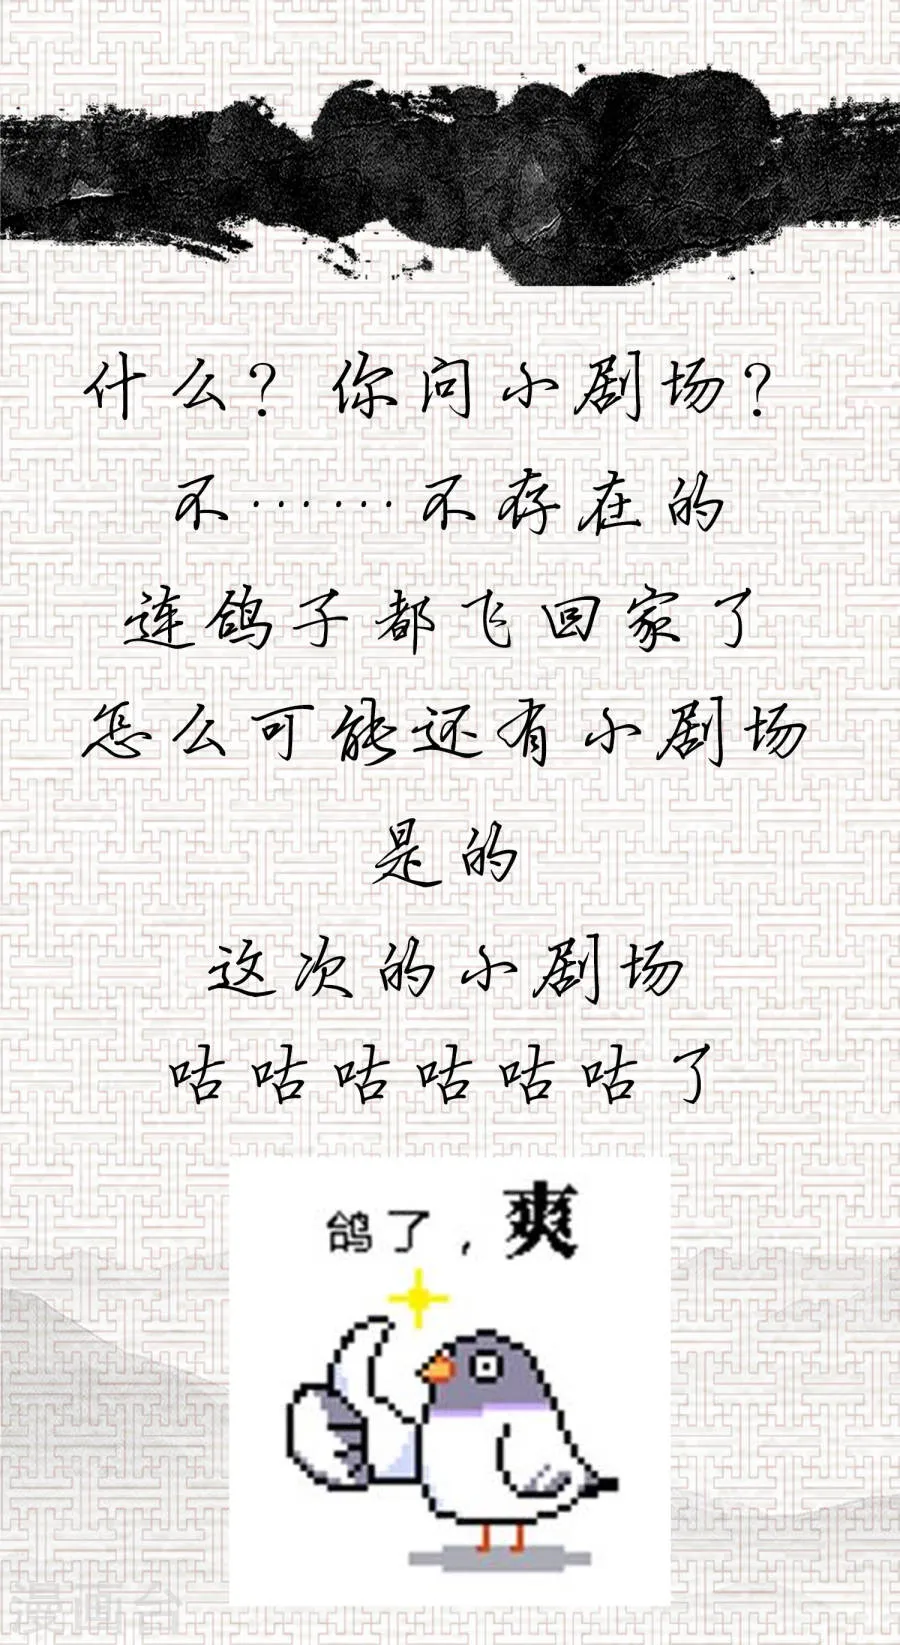 什么？你问小剧场？
不……不存在的
连鸽子都飞回家了
怎么可能还有小剧场
是的
这次的小剧场
咕咕咕咕咕咕了
鸽了，爽
漫画台